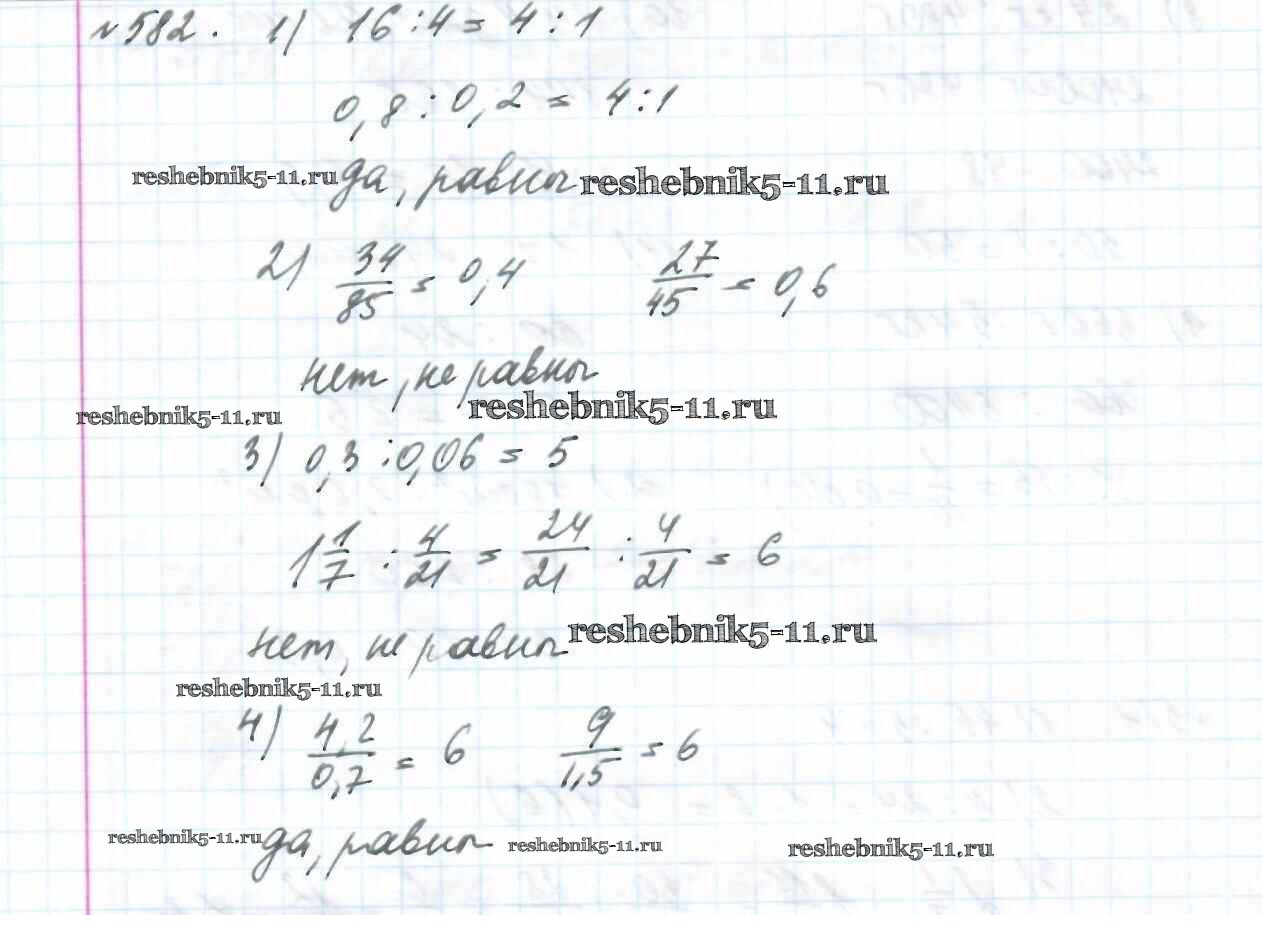 №582. 1) 16:4 = 4:1
0,8:0,2 = 4:1
reshebnik5-11.ru да, равны reshebnik5-11.ru
2) 34/85 = 0,4 27/45 = 0,6
нет, не равны
reshebnik5-11.ru reshebnik5-11.ru
3) 0,3:0,06 = 5
1 1/7 : 4/21 = 24/21 : 4/21 = 6
нет, не равны reshebnik5-11.ru
reshebnik5-11.ru
4) 4,2/0,7 = 6 9/1,5 = 6
reshebnik5-11.ru да, равны reshebnik5-11.ru reshebnik5-11.ru